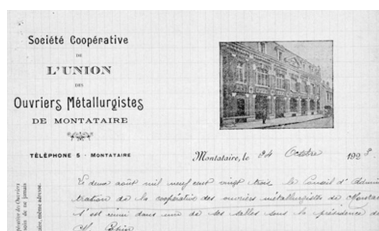 Société Coopérative
DE
L'UNION
DES
Ouvriers Métallurgistes
DE MONTATAIRE
TÉLÉPHONE 5 - MONTATAIRE
Montataire, le 24 Octobre 1928
Le deux août mil neuf cent vingt trois le Conseil d'Admi
tration de la coopérative des ouvriers métallurgistes de
s'est réuni dans une de ses salles sous la présidence de
même adresse.